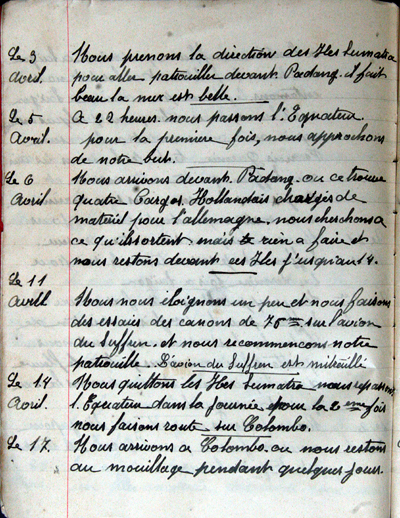 Le 3 Nous prenons la direction des Iles Sumatra
avril. pour aller patrouiller devant Padang. il fait
beau la mer est belle.
Le 5 A 22 heures nous passons l'Equateur
Avril. pour la premiere fois, nous approchons
de notre but.
Le 6 Nous arrivons devant Padang. ou ce trouve
Avril quatre Cargos Hollandais chargés de
materiel pour l'allemagne. nous cherchons a
ce qu'ils sortent mais rien a faire et
nous restons devant ces Iles j'usqu'au 14.
Le 11
Avril Nous nous éloignons un peu et nous faisons
des essais des canons de 75 sur l'avion
du Suffren. et nous recommençons notre
patrouille. L'avion du Suffren est mitraillé
Le 14 Nous quittons les Iles Sumatra nous repassons
Avril. l'Equateur dans la journée pour la 2eme fois
nous faisons route sur Colombo.
Le 17. Nous arrivons a Colombo. ou nous restons
au mouillage pendant quelques jours.